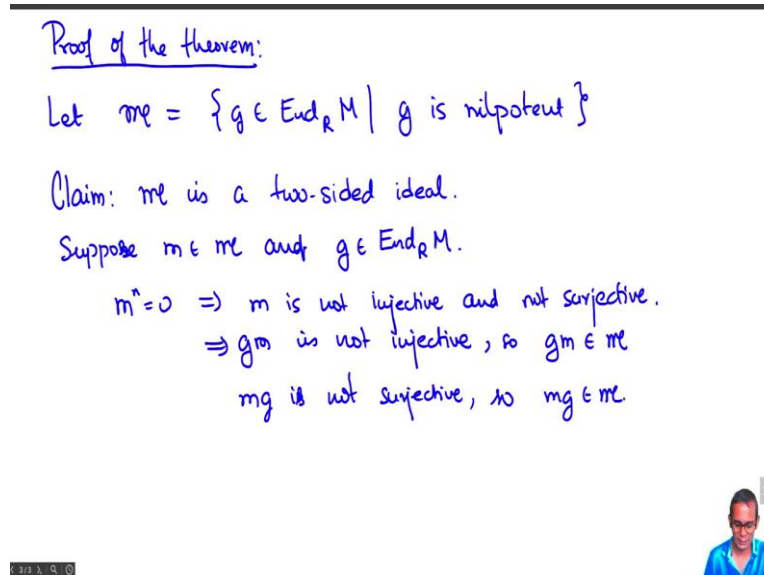 Proof of the theorem:
Let 𝔪 = { g ∈ End_R M | g is nilpotent }
Claim: 𝔪 is a two-sided ideal.
Suppose m ∈ 𝔪 and g ∈ End_R M.
m^n = 0 ⇒ m is not injective and not surjective.
⇒ gm is not injective, so gm ∈ 𝔪
mg is not surjective, so mg ∈ 𝔪.
3/3